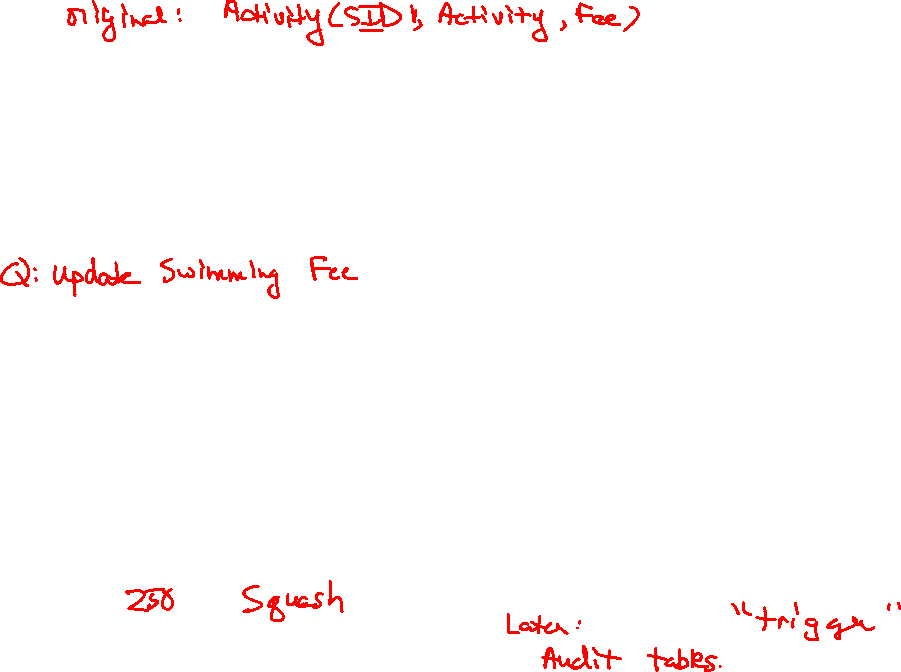 original: Activity (SID, Activity, Fee)
Q: Update Swimming Fee
250 Squash
Later: "trigger"
Audit tables.